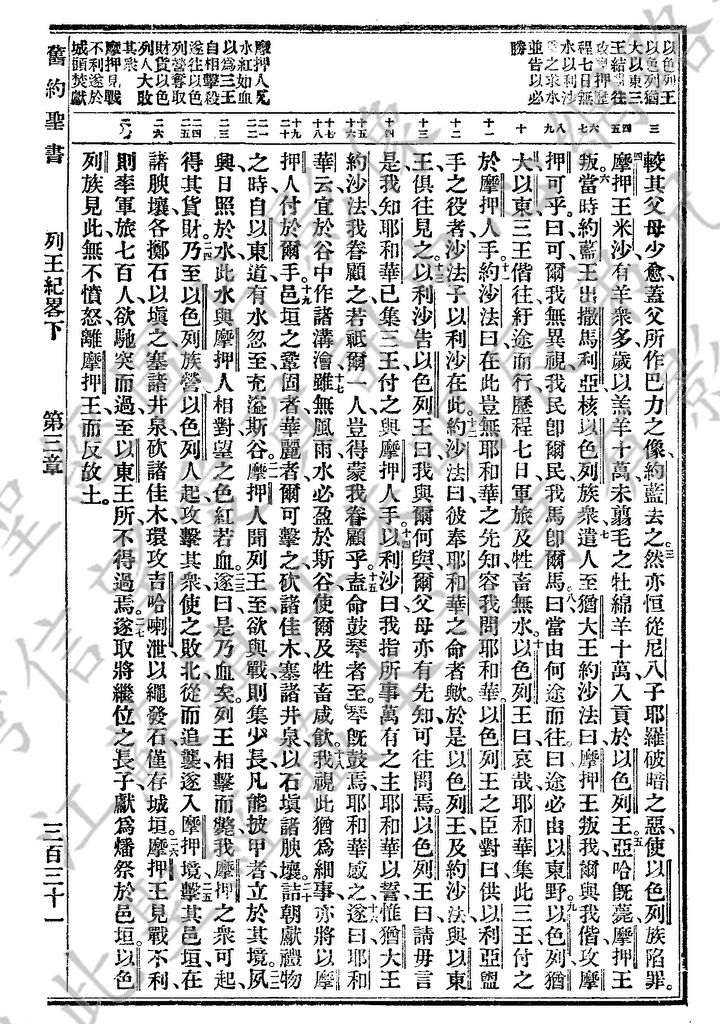 以色列王
以色列猶
大以東三
王結盟往
攻摩押歷
程七日無
水以利沙
爲之求水
並告以必
勝
摩押人見
水紅如血
以爲三王
自相擊殺
遂往以色
列營奪取
財貨以色
列人大敗
其衆
摩押見戰
不利遂於
城頭焚獻
較其父母少愈蓋父所作巴力之像約藍去之然亦恒從尼八子耶羅破暗之惡使以色列族陷罪
摩押王米沙有羊衆多歲以羔羊十萬未翦毛之牡綿羊十萬入貢於以色列王亞哈旣薨摩押王
叛當時約藍王出撒馬利亞核以色列族衆遣人至猶大王約沙法曰摩押王叛我爾與我偕攻摩
押可乎曰可爾我無異視我民卽爾民我馬卽爾馬曰當由何途而往曰途必由以東野以色列猶
大以東三王偕往紆途而行歷程七日軍旅及牲畜無水以色列王曰哀哉耶和華集此三王付之
於摩押人手約沙法曰在此豈無耶和華之先知容我問耶和華以色列王之臣對曰供以利亞盥
手之役者沙法子以利沙在此約沙法曰彼奉耶和華之命者歟於是以色列王及約沙法與以東
王俱往見之以利沙告以色列王曰我與爾何與爾父母亦有先知可往問焉以色列王曰請毋言
是我知耶和華已集三王付之與摩押人手以利沙曰我指所事萬有之主耶和華以誓惟猶大王
約沙法我眷顧之若祗爾一人豈得蒙我眷顧乎盍命鼓琴者至琴旣鼓焉耶和華感之遂曰耶和
華云宜於谷中作諸溝澮雖無風雨水必盈於斯谷使爾及牲畜咸飲我視此猶爲細事亦將以摩
押人付於爾手邑垣之鞏固者華麗者爾可擊之砍諸佳木塞諸井泉以石塡諸腴壤詰朝獻禮物
之時自以東道有水忽至充溢斯谷摩押人聞列王至欲與戰則集少長凡能披甲者立於其境夙
興日照於水此水與摩押人相對望之色紅若血遂曰是乃血矣列王相擊而斃我摩押之衆可起
得其貨財乃至以色列族營以色列人起攻擊其衆使之敗北從而追襲遂入摩押境擊其邑垣在
諸腴壤各擲石以塡之塞諸井泉砍諸佳木環攻吉哈喇泄以繩發石僅存城垣摩押王見戰不利
則率軍旅七百人欲馳突而過至以東王所不得過焉遂取將繼位之長子獻爲燔祭於邑垣以色
列族見此無不憤怒離摩押王而反故土
舊約聖書
列王紀畧下
第三章
三百三十一